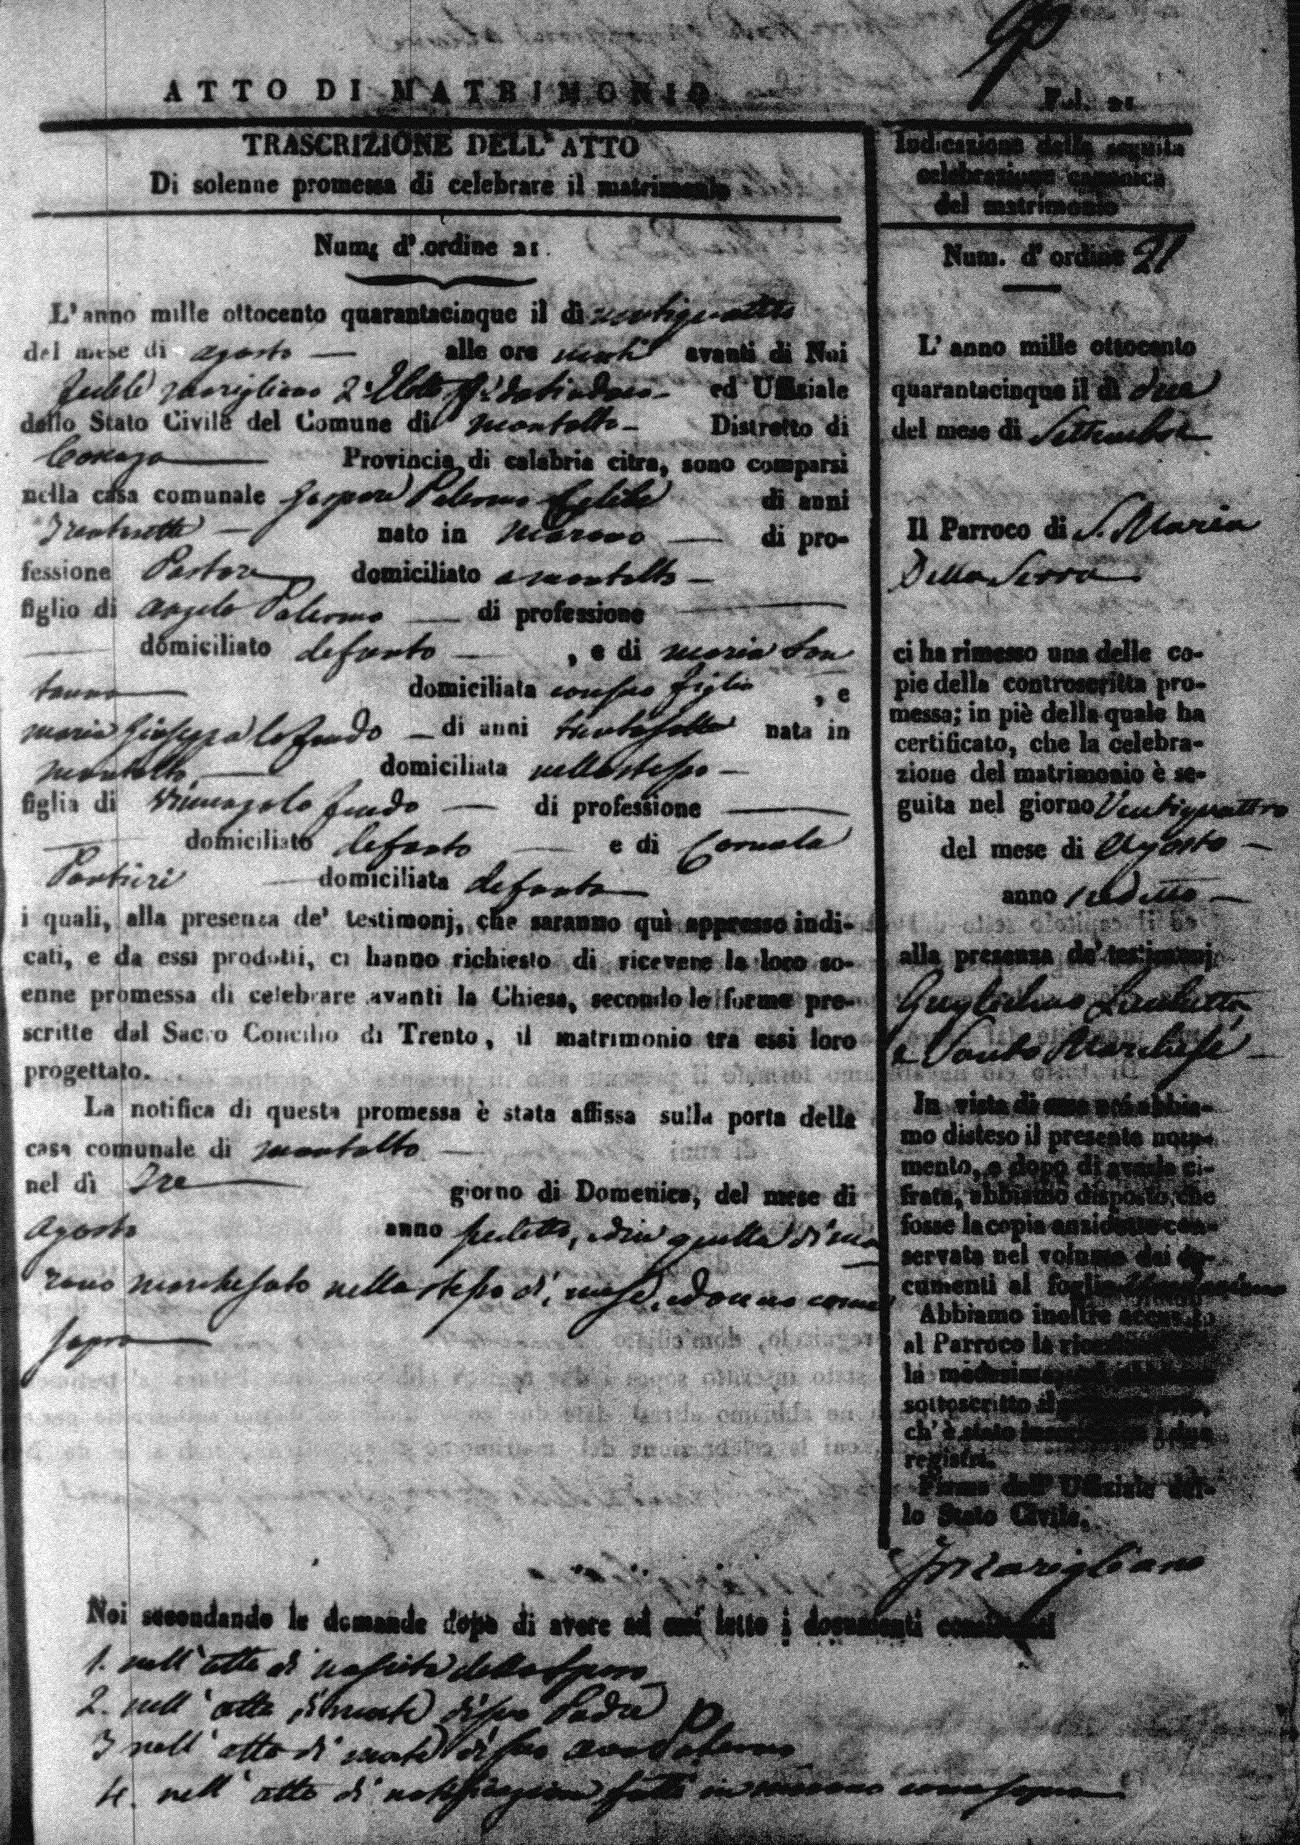 ATTO DI MATRIMONIO
Fol. 21
TRASCRIZIONE DELL' ATTO
Di solenne promessa di celebrare il matrimonio
Num. d' ordine 21.
L' anno mille ottocento quarantacinque il dì ventiquattro
del mese di agosto alle ore venti avanti di Noi
Fedele Marigliano 2.° Eletto ed Uffiziale
dello Stato Civile del Comune di Montalto Distretto di
Cosenza Provincia di calabria citra, sono comparsi
nella casa comunale Gaspare Palermo Celibe di anni
Trentasette nato in Marano di pro-
fessione Pastore domiciliato a Montalto
figlio di Angelo Palermo di professione
domiciliato defunto , e di Maria San
tanna domiciliata con suo figlio , e
Maria Giuseppa lo feudo di anni trentasette nata in
Montalto domiciliata nello stesso
figlia di lo feudo di professione
domiciliato defunto e di
domiciliata defunta
i quali, alla presenza de' testimonj, che saranno quì appresso indi-
cati, e da essi prodotti, ci hanno richiesto di ricevere la loro so-
enne promessa di celebrare avanti la Chiesa, secondo le forme pre-
scritte dal Sacro Concilio di Trento, il matrimonio tra essi loro
progettato.
La notifica di questa promessa è stata affissa sulla porta della
casa comunale di Montalto
nel dì Tre giorno di Domenica, del mese di
agosto anno sudetto, ed in quella di Ma
rano Marchesato nello stesso dì, mese, ed anno come
sopra
Indicazione della seguita
celebrazione canonica
del matrimonio
Num. d' ordine 21
L' anno mille ottocento
quarantacinque il dì due
del mese di Settembre
Il Parroco di S. Maria
Della Serra
ci ha rimesso una delle co-
pie della controscritta pro-
messa; in piè della quale ha
certificato, che la celebra-
zione del matrimonio è se-
guita nel giorno Ventiquattro
del mese di Agosto
anno sudetto
alla presenza de' testimonj
Guglielmo
e Santo Marchese
In vista di essa noi abbia-
mo disteso il presente nota-
mento, e dopo di averla ci-
frata, abbiamo disposto, che
fosse la copia anzidetta con-
servata nel volume dei do-
cumenti al foglio
Abbiamo inoltre accusato
al Parroco la
la medesima
sottoscritto il
ch' è stato due
registri.
Firma dell' Uffiziale del-
lo Stato Civile.
F Marigliano
Noi secondando le domande dopo di avere ad essi letto i documenti consistenti
1. nell' atto di nascita dello sposo
2. nell' atto di morte di suo Padre
3 nell' atto di morte di suo avo Paterno
4. nell' atto di notificazione fatta in Marano come sopra